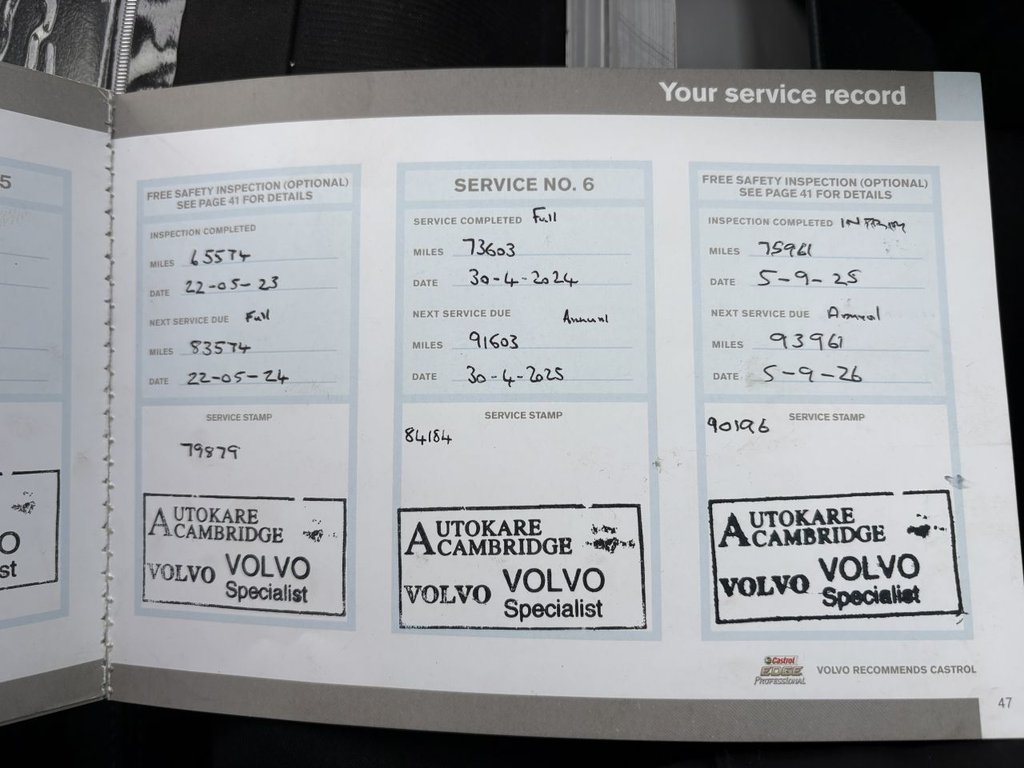 Your service record
5
FREE SAFETY INSPECTION (OPTIONAL)
SEE PAGE 41 FOR DETAILS
INSPECTION COMPLETED
MILES 65574
DATE 22-05-23
NEXT SERVICE DUE Full
MILES 83574
DATE 22-05-24
SERVICE STAMP
79879
AUTOKARE
CAMBRIDGE
VOLVO VOLVO
Specialist
SERVICE NO. 6
SERVICE COMPLETED Full
MILES 73603
DATE 30-4-2024
NEXT SERVICE DUE Annual
MILES 91603
DATE 30-4-2025
SERVICE STAMP
84184
AUTOKARE
CAMBRIDGE
VOLVO VOLVO
Specialist
FREE SAFETY INSPECTION (OPTIONAL)
SEE PAGE 41 FOR DETAILS
INSPECTION COMPLETED
MILES 75961
DATE 5-9-25
NEXT SERVICE DUE Annual
MILES 93961
DATE 5-9-26
SERVICE STAMP
90196
AUTOKARE
CAMBRIDGE
VOLVO VOLVO
Specialist
Castrol
EDGE
PROFESSIONAL
VOLVO RECOMMENDS CASTROL
47